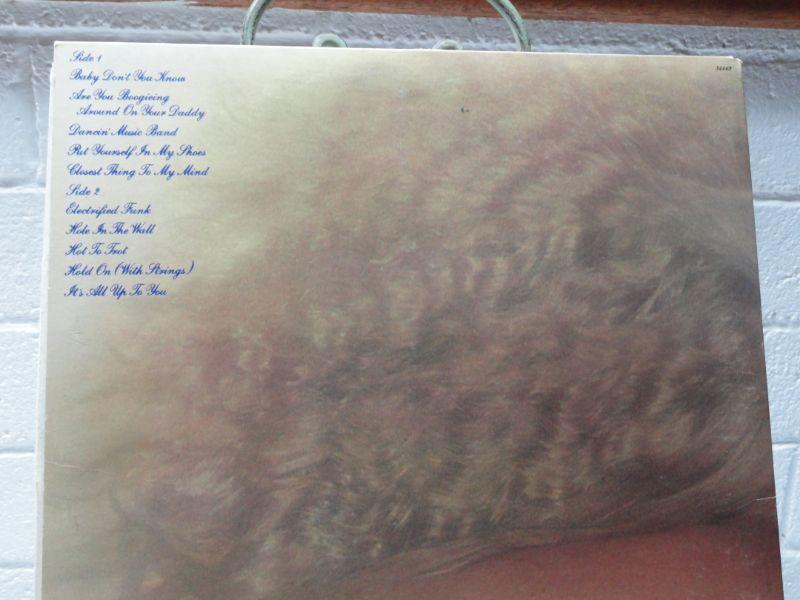 Side 1
Baby Don't You Know
Are You Boogieing
Around On Your Daddy
Dancin' Music Band
Put Yourself In My Shoes
Closest Thing To My Mind
Side 2
Electrified Funk
Hole In The Wall
Hot To Trot
Hold On (With Strings)
It's All Up To You
34443